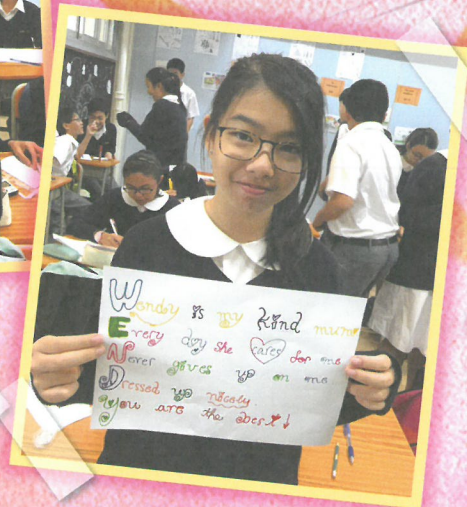 Wendy is my kind mum
Every day she cares for me
Never gives up on me
Dressed up nicely
You are the best!